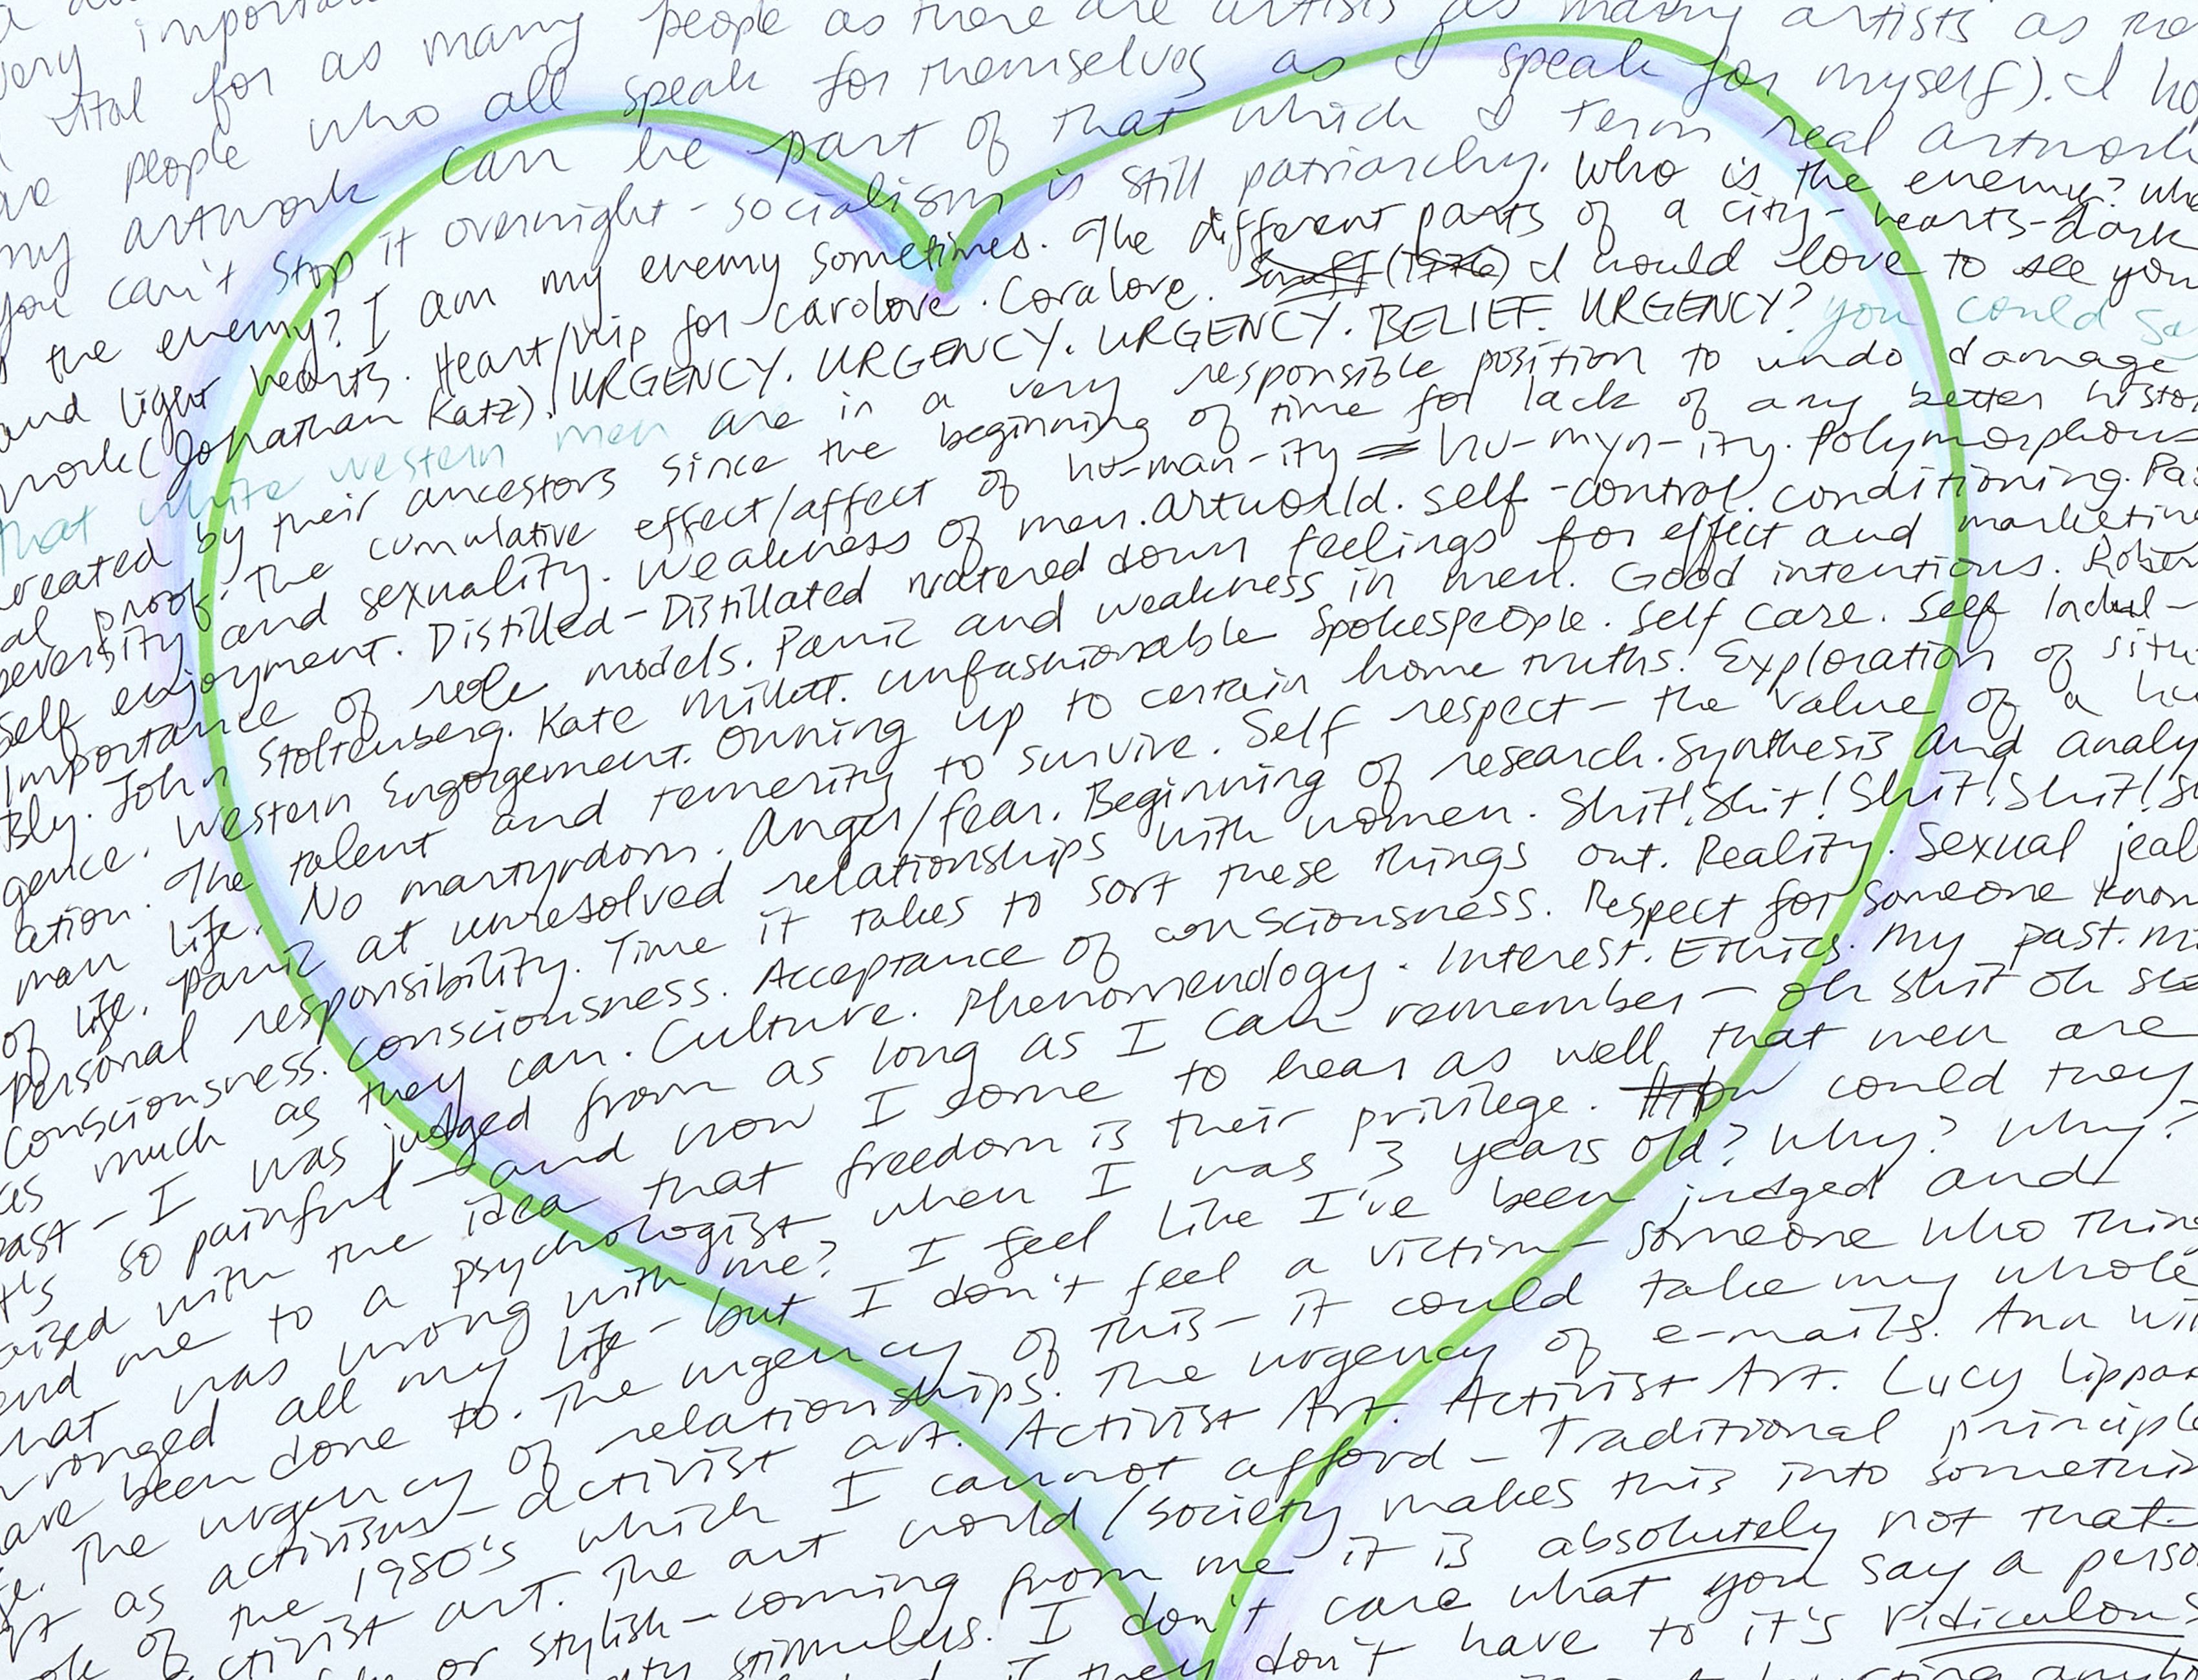 very
vital for as many people as there are artists as many artists as
people who all speak for themselves as I speak for myself). I
my artwork can be part of that which I term real artwork
you can't stop it overnight - socialism is still patriarchy. Who is the enemy? Who
the enemy? I am my enemy sometimes. The different parts of a city - hearts - dark
and light hearts. Heart/trip for carolove. Coralove. Snuff (1976) I would love to see your
work (Jonathan Katz). URGENCY. URGENCY. URGENCY. BELIEF. URGENCY? you could
that white western men are in a very responsible position to undo damage
created by their ancestors since the beginning of time for lack of any better histor
al proof. The cumulative effect/affect of hu-man-ity = hu-myn-ity. Polymorphous
perversity and sexuality. Weakness of men. artworld. self-control. conditioning.
self enjoyment. Distilled - Distillated watered down feelings for effect and marketing
Importance of role models. Panic and weakness in men. Good intentions. Rober
Bly. John Stoltenberg. Kate Millett. unfashionable spokespeople. Self care. Self Indul-
gence. Western Engorgement. Owning up to certain home truths. Exploration of situ
ation. The talent and temerity to survive. Self respect - the value of a hu
man life. No martyrdom. Anger/fear. Beginning of research. Synthesis and analy
of life. panic at unresolved relationships with women. Shit! Shit! Shit! Shit!
Personal responsibility. Time it takes to sort these things out. Reality. Sexual jeal
consciousness. consciousness. Acceptance of consciousness. Respect for someone know
as much as they can. Culture. Phenomendogy. Interest. Ethics. My past.
past - I was judged from as long as I can remember - oh shit oh
it's so painful - and now I come to hear as well that men are
with the idea that freedom is their privilege. How could they
send me to a psychologist when I was 3 years old? Why? Why?
what was wrong with me? I feel like I've been judged and
wronged all my life - but I don't feel a victim - someone who
have been done to. The urgency of this - it could take my whole
The urgency of relationships. The urgency of e-mails. Ann
as activism - activist art. Activist Art. Activist Art. Lucy Lippar
of the 1980's which I cannot afford - Traditional principle
activist art. The art world/society makes this into
or stylish - coming from me it is absolutely not that.
stimulus. I don't care what you say a
if they don't have to it's ridiculous